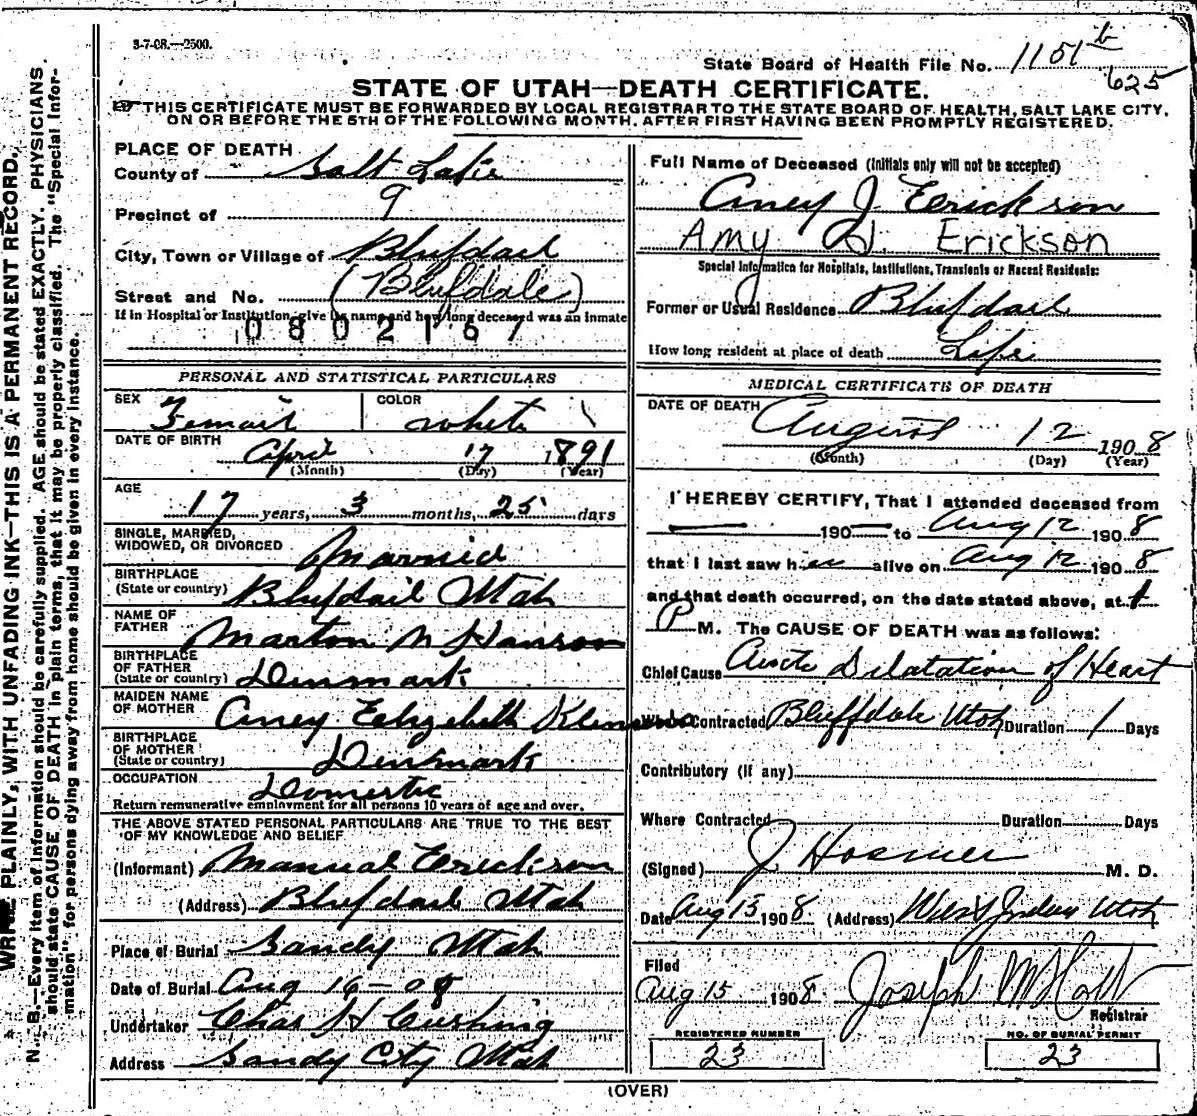 3-7-08.—2500.
State Board of Health File No. 1101 b
625
STATE OF UTAH—DEATH CERTIFICATE.
THIS CERTIFICATE MUST BE FORWARDED BY LOCAL REGISTRAR TO THE STATE BOARD OF HEALTH, SALT LAKE CITY,
ON OR BEFORE THE 5TH OF THE FOLLOWING MONTH, AFTER FIRST HAVING BEEN PROMPTLY REGISTERED.
PLACE OF DEATH
County of Salt Lake
Precinct of 9
City, Town or Village of Blufdail
(Blufdale)
Street and No.
If in Hospital or Institution, give its name and how long deceased was an inmate
0802167
PERSONAL AND STATISTICAL PARTICULARS
SEX Femail COLOR white
DATE OF BIRTH April 17 1891
(Month) (Day) (Year)
AGE 17 years, 3 months, 25 days
SINGLE, MARRIED,
WIDOWED, OR DIVORCED Married
BIRTHPLACE
(State or country) Blufdail Utah
NAME OF
FATHER Marton N Hanson
BIRTHPLACE
OF FATHER
(State or country) Denmark
MAIDEN NAME
OF MOTHER Amey Elizebeth
BIRTHPLACE
OF MOTHER
(State or country) Denmark
OCCUPATION Domestic
Return remunerative employment for all persons 10 years of age and over.
THE ABOVE STATED PERSONAL PARTICULARS ARE TRUE TO THE BEST
OF MY KNOWLEDGE AND BELIEF
(Informant) Manual Erickson
(Address) Blufdail Utah
Place of Burial Sandy Utah
Date of Burial Aug 16-08
Undertaker Chas H Cushing
Address Sandy City Utah
Full Name of Deceased (Initials only will not be accepted)
Amey J Erickson
Amy H. Erickson
Special Information for Hospitals, Institutions, Transients or Recent Residents:
Former or Usual Residence Blufdail
How long resident at place of death Life
MEDICAL CERTIFICATE OF DEATH
DATE OF DEATH August 12 1908
(Month) (Day) (Year)
I HEREBY CERTIFY, That I attended deceased from
190 to Aug 12 1908
that I last saw her alive on Aug 12 1908
and that death occurred, on the date stated above, at 1
P M. The CAUSE OF DEATH was as follows:
Chief Cause Acute Dilatation of Heart
Where Contracted Bluffdale Utah Duration 1 Days
Contributory (if any)
Where Contracted Duration Days
(Signed) J Hosmer M. D.
Date Aug 15 1908 (Address) West Jordan Utah
Filed
Aug 15 1908 Joseph M Holt
Registrar
REGISTERED NUMBER
23
NO. OF BURIAL PERMIT
23
(OVER)
WRITE PLAINLY, WITH UNFADING INK—THIS IS A PERMANENT RECORD.
N. B.—Every item of information should be carefully supplied. AGE should be stated EXACTLY. PHYSICIANS
should state CAUSE OF DEATH in plain terms, that it may be properly classified. The "Special Infor-
mation" for persons dying away from home should be given in every instance.